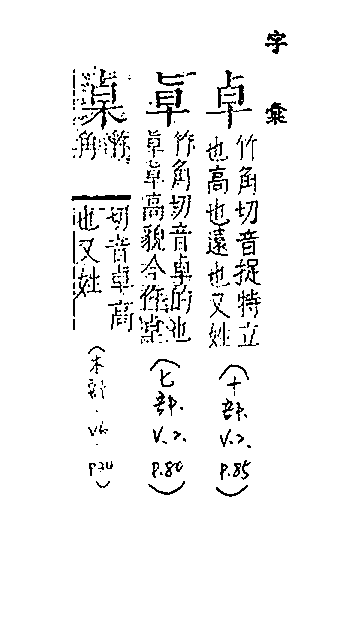 字彙
卓
竹角切音捉特立
也高也遠也又姓
(十部.
V.2.
P.85)
𠦝
竹角切音卓的也
卓高貌今作卓
(匕部.
V.2.
P.80)
槕
竹角
切音卓高
也又姓
(木部.
V6.
P34)